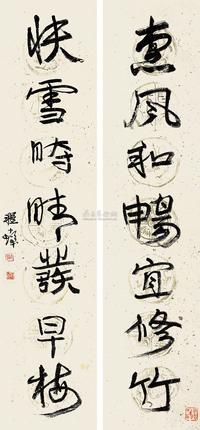 惠風和暢宜修竹
快雪時晴發早梅